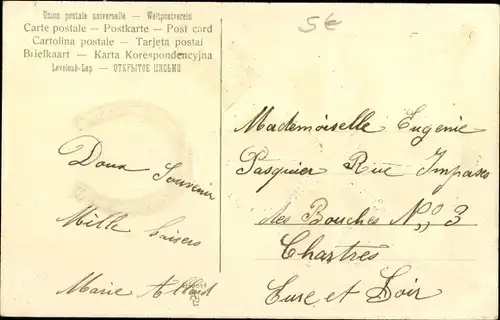 Union postale universelle — Weltpostverein
Carte postale — Postkarte — Post card
Cartolina postale — Tarjeta postal
Briefkaart — Karta Korespondencyjna
Levelezö-Lap — ОТКРЫТОЕ ПИСЬМО
5€
Doux Souvenir
Mille baisers
Marie
Mademoiselle Eugenie
Pasquier Rue Impasse
des Bouches No 3
Chartres
Eure et Loir